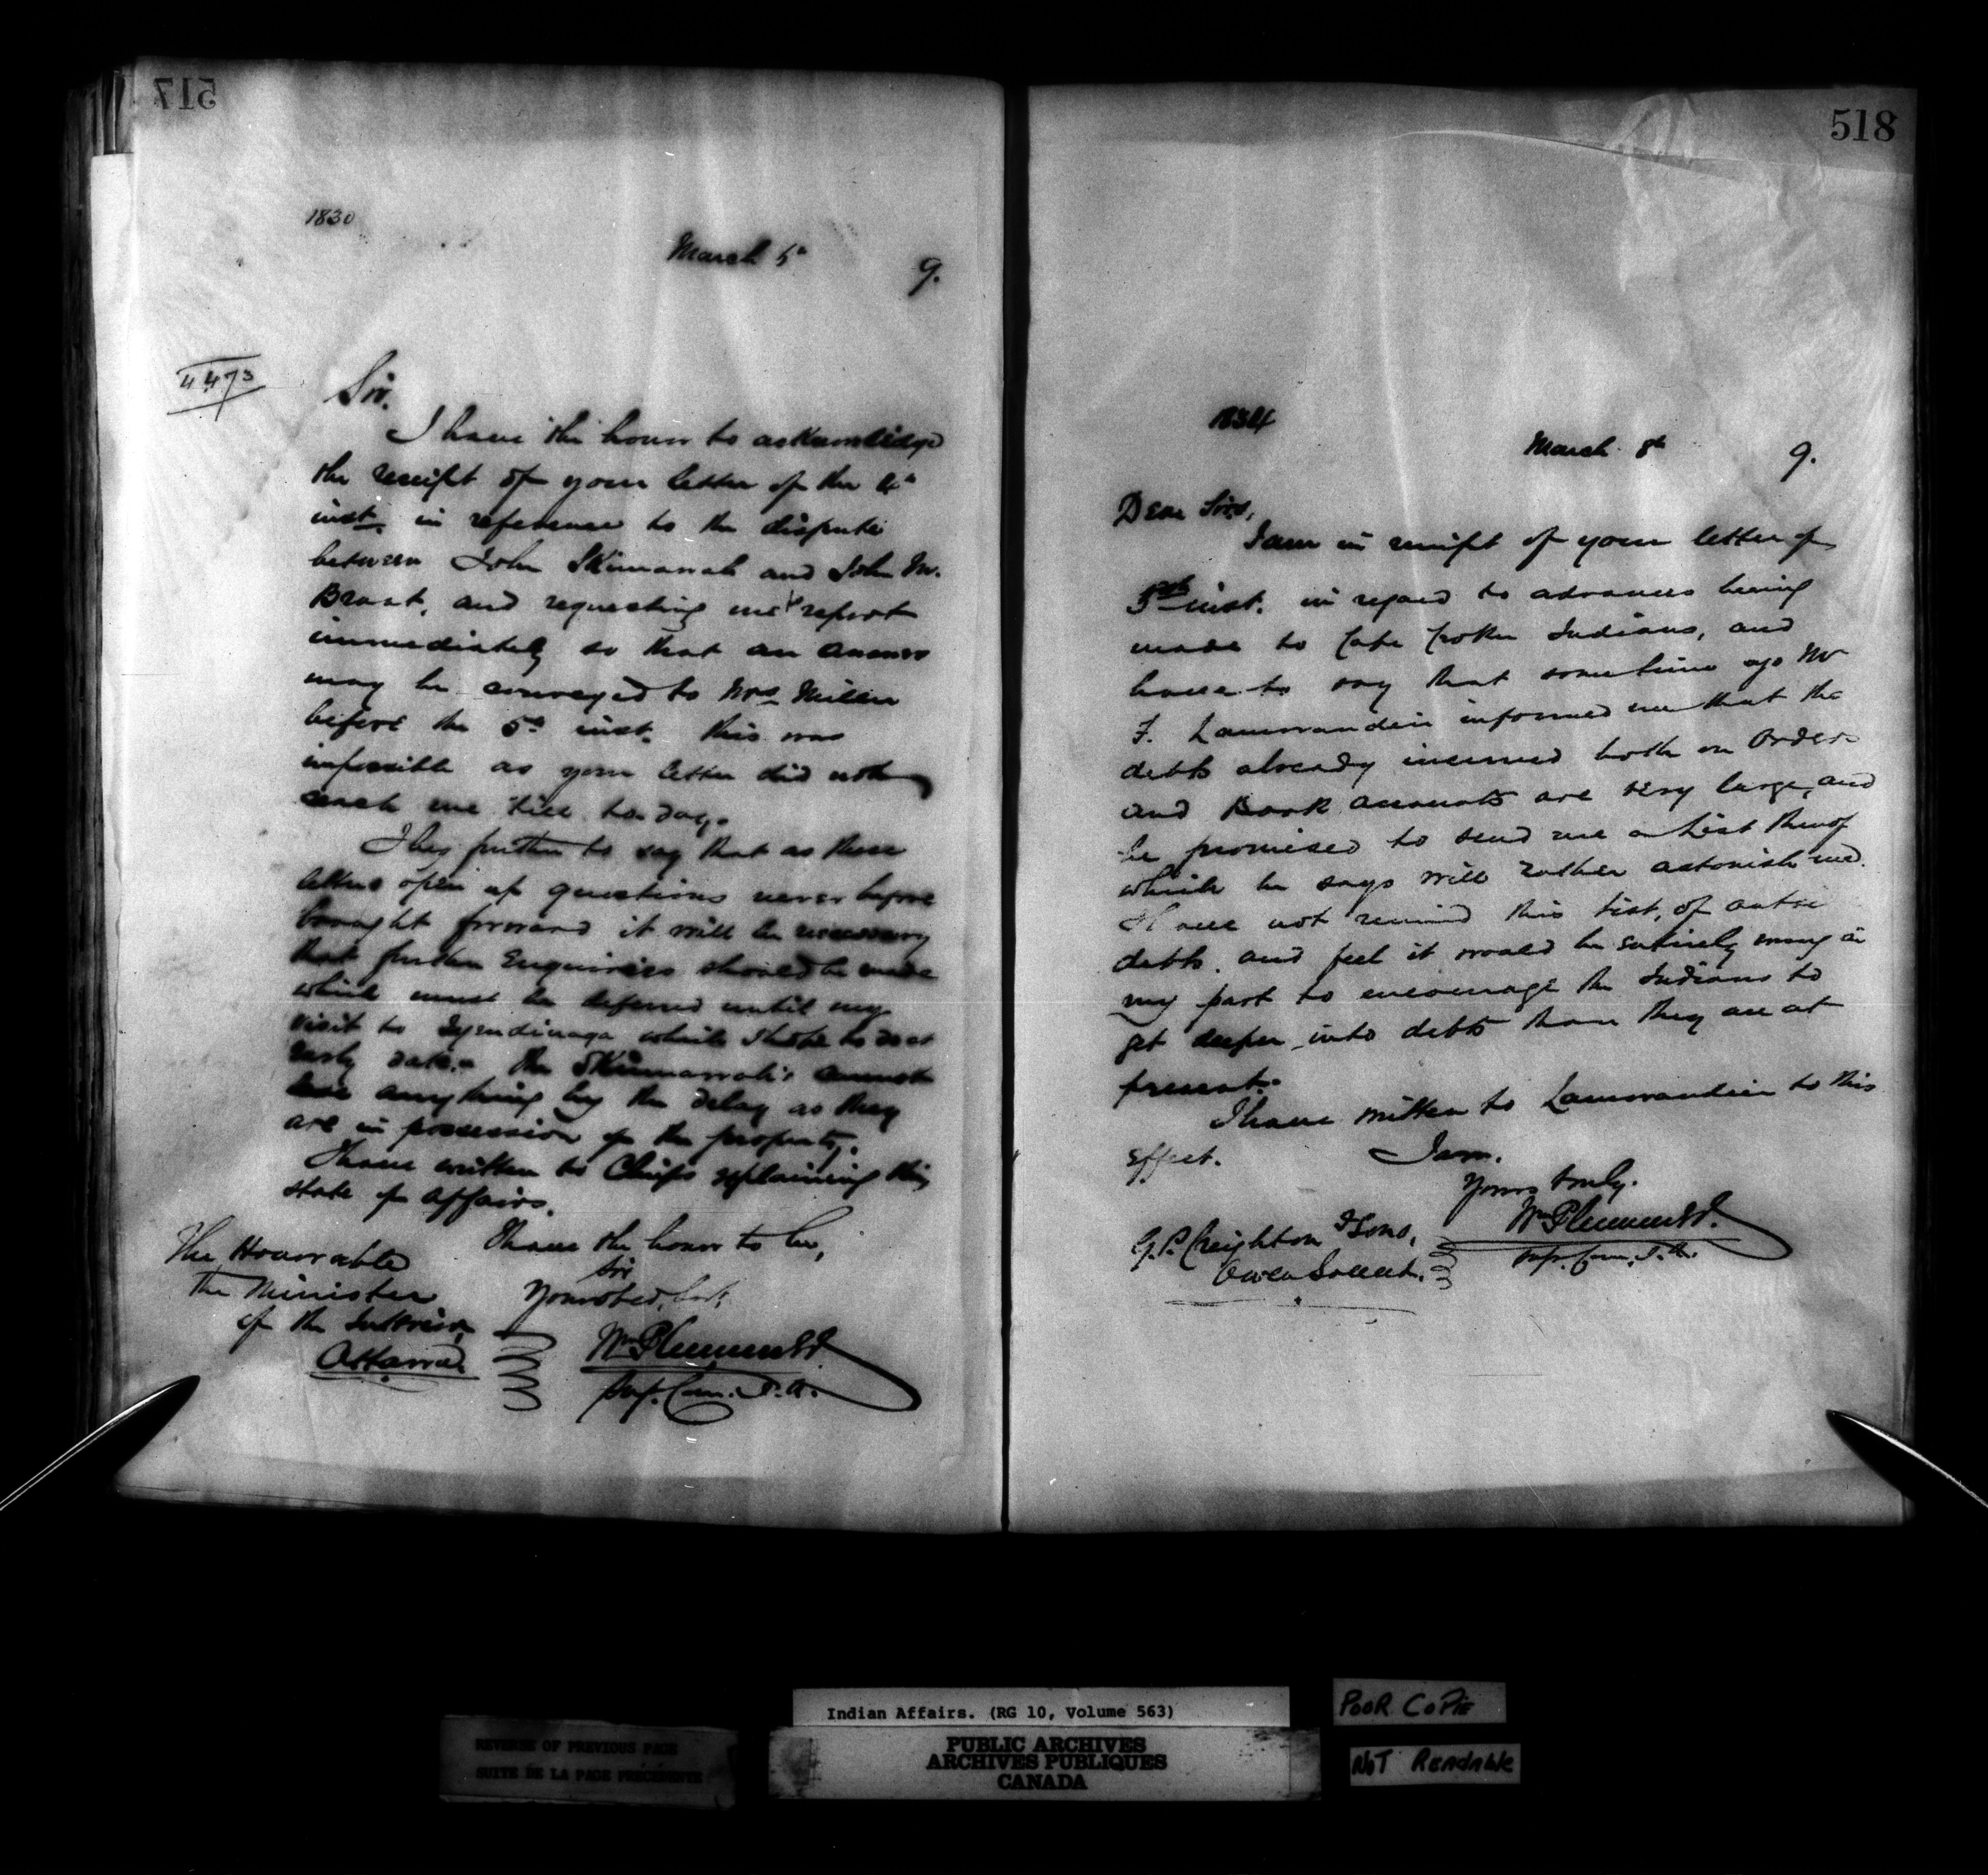 517
1830
March 5th
9.
4473
Sir.
I have the honor to acknowledge
the receipt of your letter of the 4th
inst. in reference to the dispute
between John Skimanah and John M.
Brant, and requesting me to report
immediately so that an answer
may be conveyed to Mrs Miller
before the 5th inst. this was
impossible as your letter did not
reach me till to-day.
I beg further to say that as these
letters open up questions never before
brought forward it will be necessary
that further Enquiries should be made
which must be deferred until my
visit to Tyendinaga which I hope to do at
early date. the Skimanah's cannot
lose anything by the delay as they
are in possession of the property.
I have written to Chiefs explaining this
state of affairs.
I have the honor to be,
Sir
Your obed. Sert.
Wm Plummer
Sup. Com. I.A.
The Honorable
The Minister
of the Interior
Ottawa
518
1834
March 8th
9.
Dear Sirs,
I am in receipt of your letter of
5th inst. in regard to advances being
made to Cape Croker Indians, and
have to say that sometime ago Mr
F. Lamorandier informed me that the
debts already incurred both on Orders
and Book accounts are very large, and
he promised to send me a List thereof
which he says will rather astonish me.
I have not received this list, of
debts. and feel it would be entirely wrong on
my part to encourage the Indians to
get deeper into debts than they are at
present.
I have written to Lamorandier to this
effect.
I am.
Yours truly.
Wm Plummer
Sup. Com. I.A.
G. P. Creighton & Sons,
Owen Sound.
Indian Affairs. (RG 10, Volume 563)
PUBLIC ARCHIVES
ARCHIVES PUBLIQUES
CANADA
REVERSE OF PREVIOUS PAGE
SUITE DE LA PAGE PRÉCÉDENTE
POOR COPIE
NOT READABLE